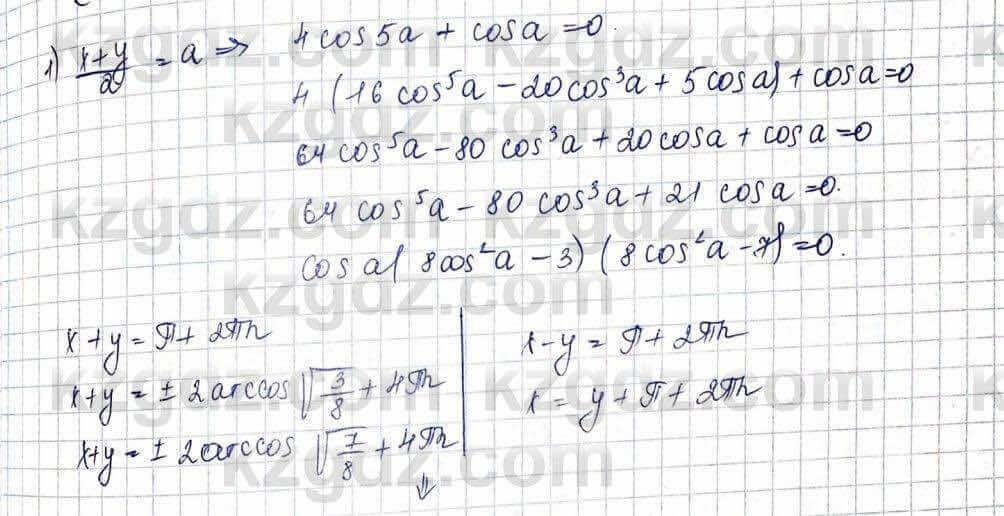 1) (x+y)/2 = a ⇒ 4 cos 5a + cos a = 0.
4 (16 cos⁵a − 20 cos³a + 5 cos a) + cos a = 0
64 cos⁵a − 80 cos³a + 20 cos a + cos a = 0
64 cos⁵a − 80 cos³a + 21 cos a = 0.
cos a( 8cos²a − 3) (8cos²a − 7) = 0.
x + y = π + 2πn
x + y = ± 2 arccos √(3/8) + 4πn
x+y = ± 2arccos √(7/8) + 4πn
⇓
x − y = π + 2πn
x = y + π + 2πn
kzgdz.com